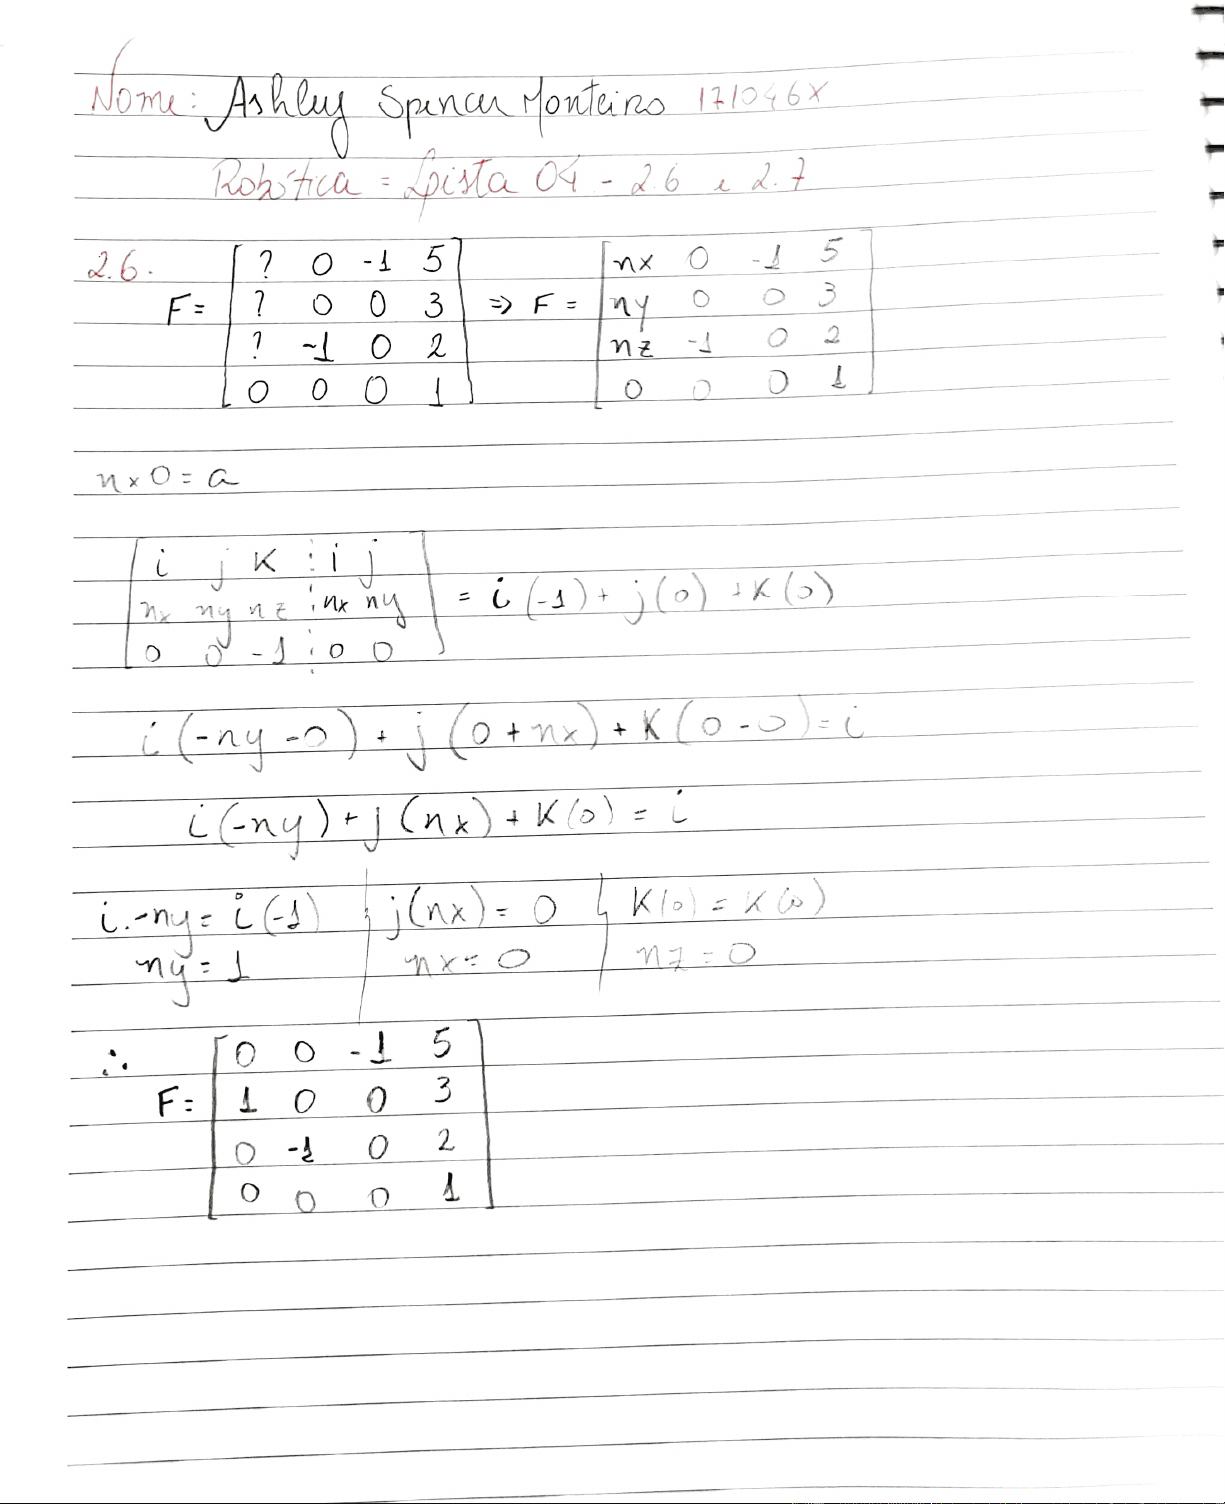 Nome: Ashley Spencer Monteiro 171046X
Robótica = Lista 04 - 2.6 e 2.7
2.6. F = [? 0 -1 5 ; ? 0 0 3 ; ? -1 0 2 ; 0 0 0 1] => F = [nx 0 -1 5 ; ny 0 0 3 ; nz -1 0 2 ; 0 0 0 1]
n x 0 = a
i j K i j
nx ny nz nx ny = i (-1) + j (0) + K (0)
0 0 -1 0 0
i (-ny - 0) + j (0 + nx) + K (0 - 0) = i
i (-ny) + j (nx) + K (0) = i
i. -ny = i (-1) j (nx) = 0 K (0) = K (0)
ny = 1 nx = 0 nz = 0
∴ F = [0 0 -1 5 ; 1 0 0 3 ; 0 -1 0 2 ; 0 0 0 1]